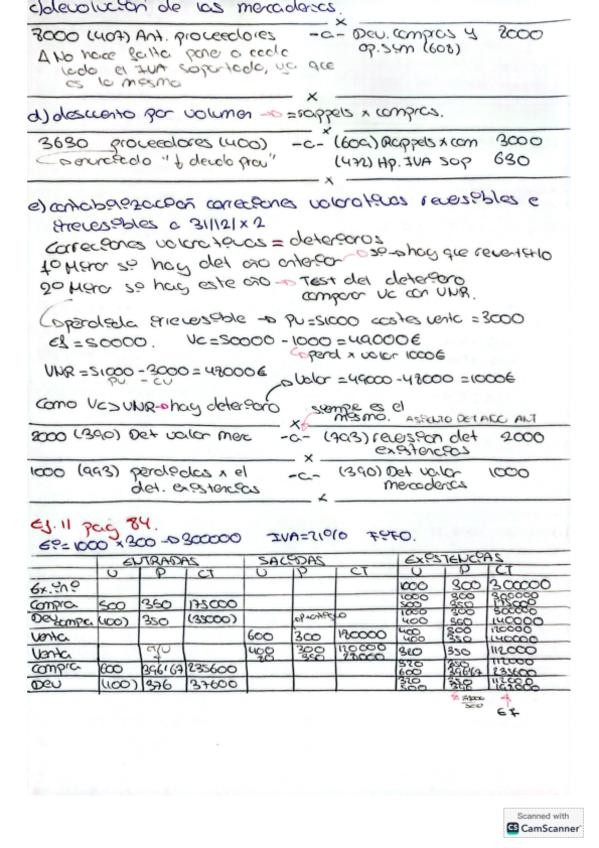 c) devolución de las mercaderías.
3000 (407) Ant. proveedores -a- Dev. compras y 2000
op. sym (608)
Δ No hace falta poner a cada
lado el IVA soportado, ya que
es lo mismo
d) descuento por volumen → = rappels x compras.
3630 proveedores (400) -a- (609) Rappels x com 3000
enunciado "↓ deuda prov" (472) Hp. IVA sop 630
e) contabilización correciones valorativas reversibles e
irreversibles a 31/12/x2
Correciones valorativas = deterioros
1º Mirar si hay det año anterior → si → hay que revertirlo
2º Mirar si hay este año → Test del deterioro
comparar VC con VNR.
perdida irreversible → PV = 51000 costes venta = 3000
Ef = 50000. VC = 50000 - 1000 = 49000€
perd x valor 1000€
VNR = 51000 - 3000 = 48000€
PV - CV
Valor = 49000 - 48000 = 1000€
Como VC > VNR → hay deterioro
siempre es el
mismo. ASIENTO DET AÑO ANT
2000 (390) Det valor merc -a- (793) reversion det 2000
existencias
1000 (693) perdidas x el -a- (390) Det valor 1000
det. existencias mercaderias
Ej. 11 pag 84.
Ei = 1000 x 300 → 300000 IVA = 21% FIFO.
ENTRADAS SALIDAS EXISTENCIAS
U P CT U P CT U P CT
Ex. ini 1000 300 300000
Compra 500 350 175000 1000 300 300000
500 350 175000
Dev compra (100) 350 (35000) 1000 300 300000
400 350 140000
Venta 600 300 180000 400 300 120000
400 350 140000
Venta 400 300 120000 320 350 112000
80 350 28000
Compra 600 235600 320 350 112000
600 235600
Dev (100) 376 37600 320 350 112000
500
Ef
Scanned with
CS CamScanner